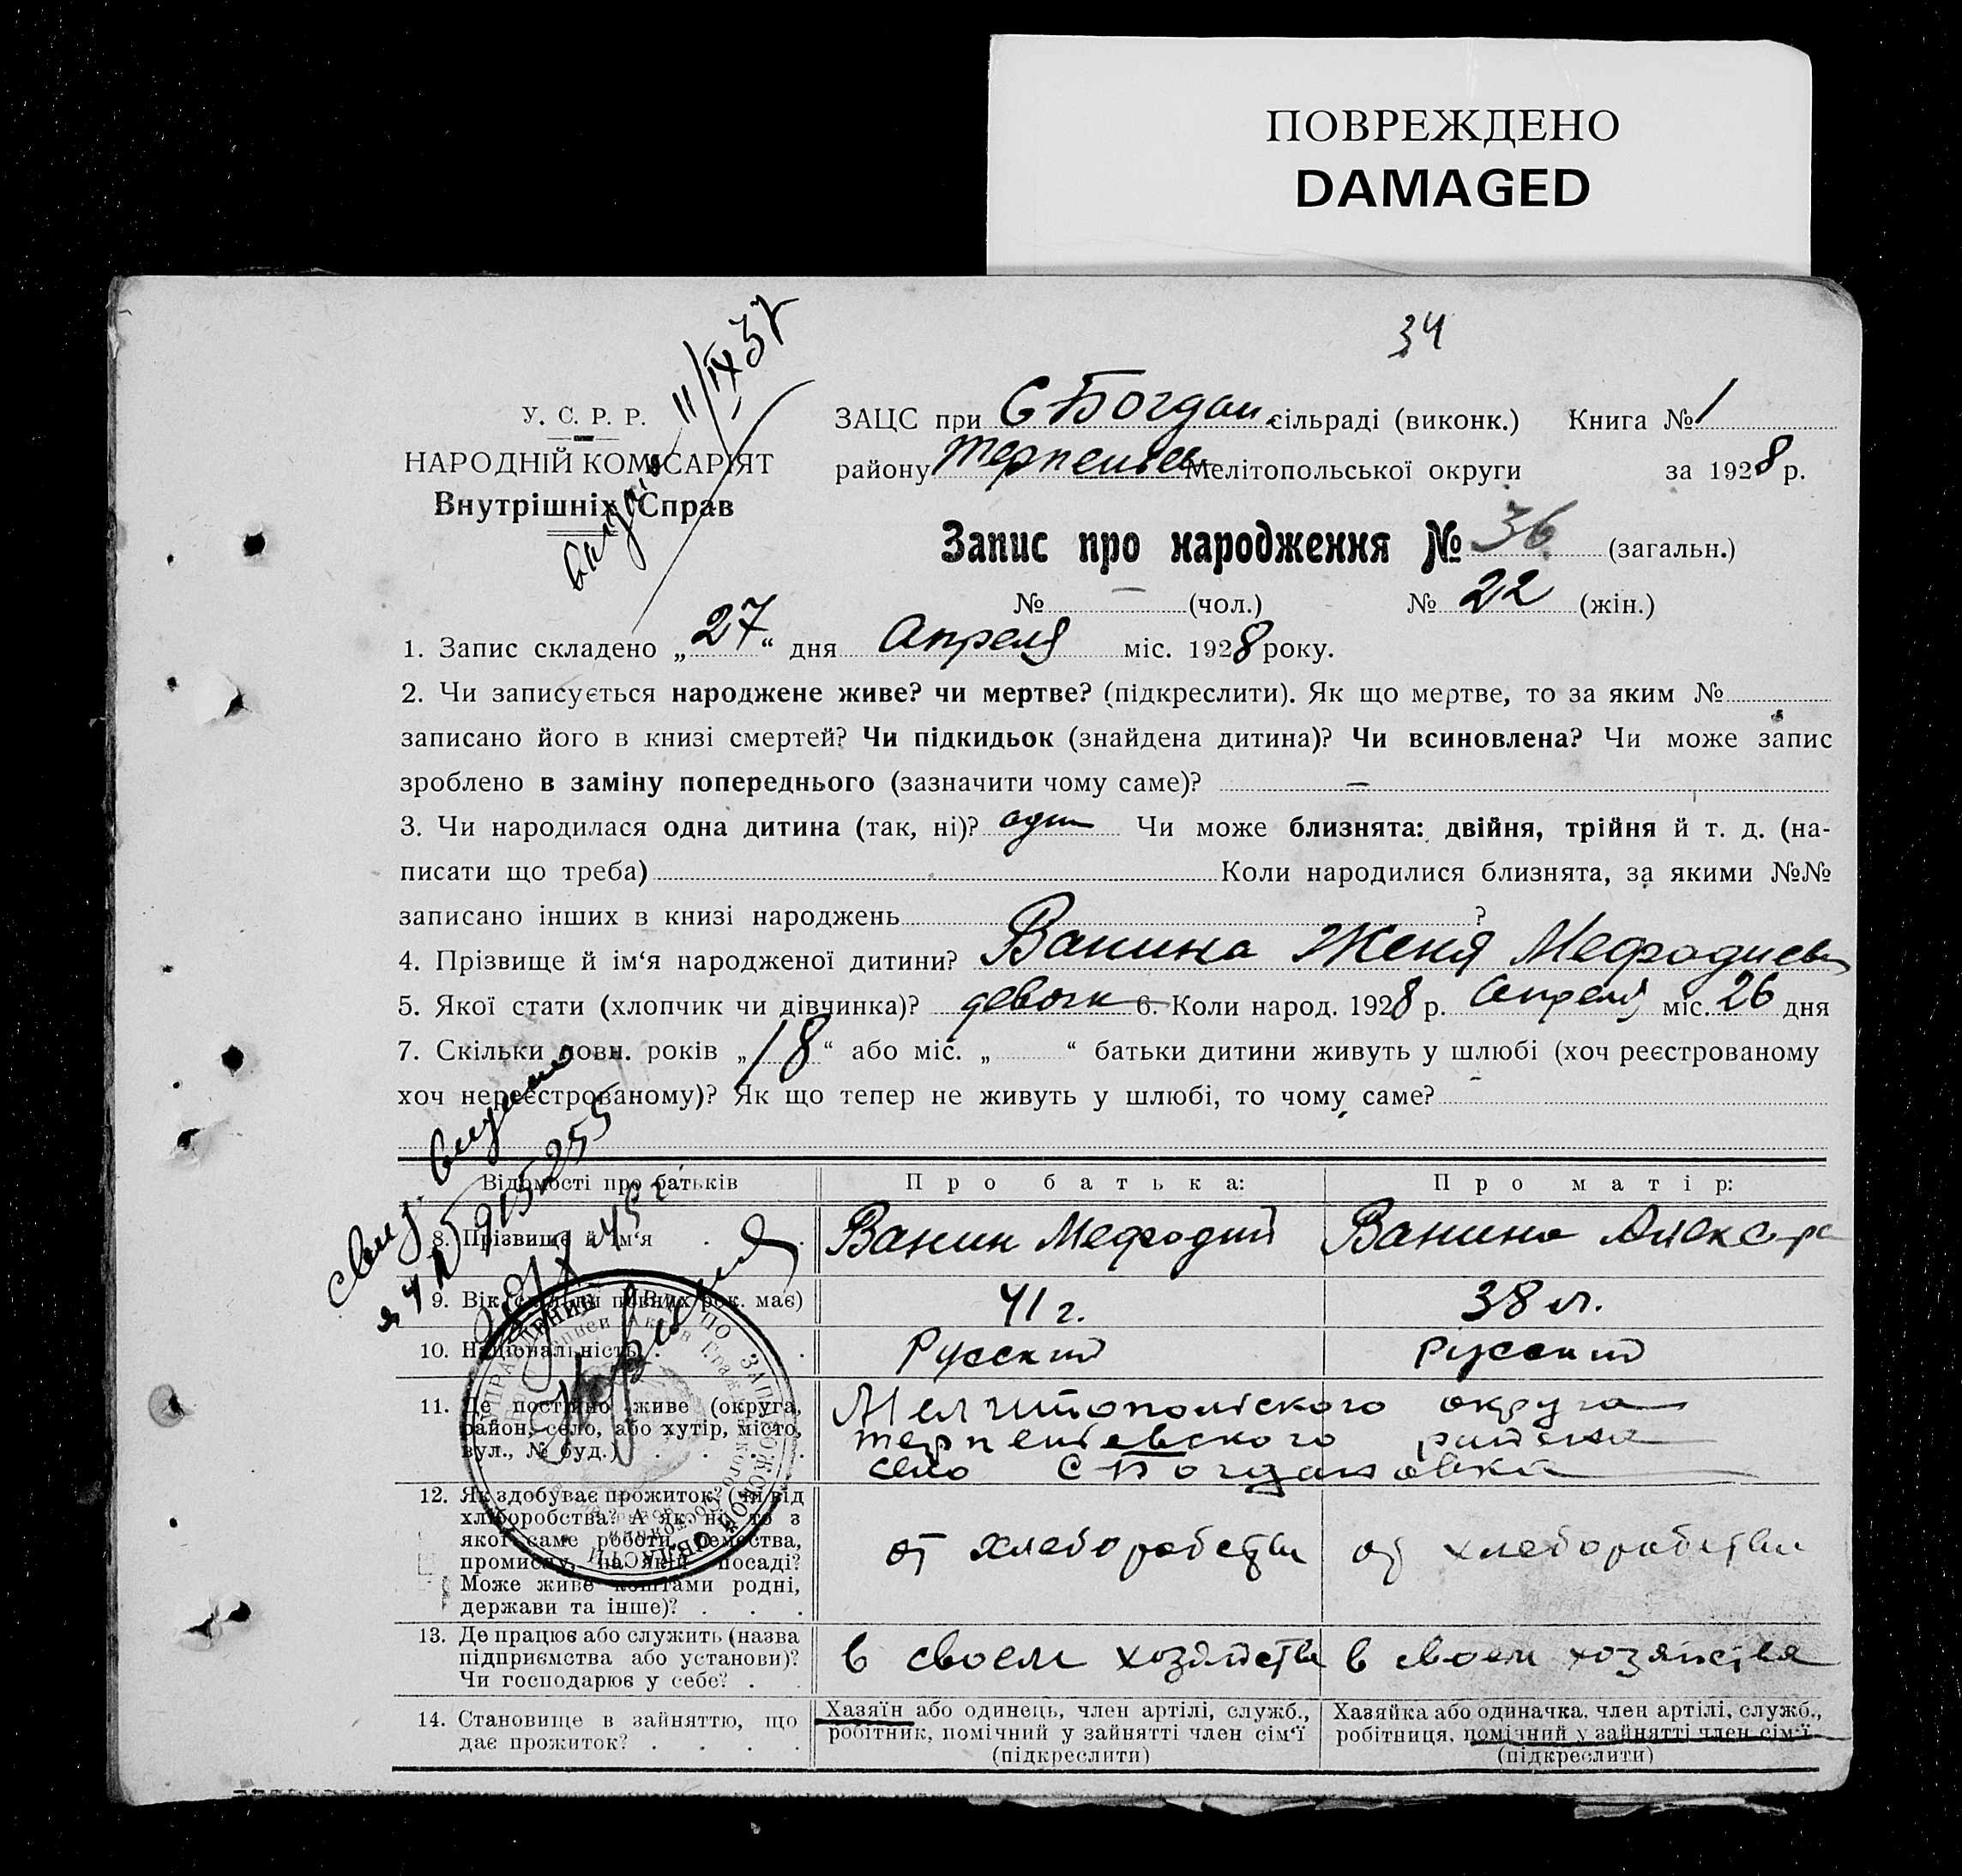 ПОВРЕЖДЕНО
DAMAGED
34
У. С. Р. Р.
НАРОДНІЙ КОМІСАРІЯТ
Внутрішніх Справ
11/IX 37
ЗАЦС при С Богдан сільраді (виконк.) Книга № 1
району Терпеньев Мелітопольської округи за 1928 р.
Запис про народження № 36 (загальн.)
№ — (чол.) № 22 (жін.)
1. Запис складено „27“ дня Апреля міс. 1928 року.
2. Чи записується народжене живе? чи мертве? (підкреслити). Як що мертве, то за яким №
записано його в книзі смертей? Чи підкидьок (знайдена дитина)? Чи всиновлена? Чи може запис
зроблено в заміну попереднього (зазначити чому саме)? —
3. Чи народилася одна дитина (так, ні)? один Чи може близнята: двійня, трійня й т. д. (на-
писати що треба) Коли народилися близнята, за якими №№
записано інших в книзі народжень ?
4. Прізвище й ім‘я народженої дитини? Ванина Женя Мефодиев
5. Якої стати (хлопчик чи дівчинка)? девочк 6. Коли народ. 1928 р. Апреля міс. 26 дня
7. Скільки повн. років „18“ або міс. „ “ батьки дитини живуть у шлюбі (хоч реєстрованому
хоч нереєстрованому)? Як що тепер не живуть у шлюбі, то чому саме?
Відомості про батьків Про батька: Про матір:
8. Прізвище й ім‘я . . Ванин Мефодий Ванина Александра
9. Вік (скільки повних рок. має) 41 г. 38 л.
10. Національність . . Русский Русский
11. Де постійно живе (округа, район, село, або хутір, місто, вул., № буд.) . . .
Мелитопольского округа
терпеньевского района
село С Богдановка
12. Як здобуває прожиток, (чи від
хліборобства? А як ні, то з
якої саме роботи, ремества,
промислу, на якій посаді?
Може живе коштами родні,
держави та інше)? . . .
от хлеборобства от хлеборобства
13. Де працює або служить (назва
підприємства або установи)?
Чи господарює у себе? . .
в своем хозяйстве в своем хозяйстве
14. Становище в зайняттю, що
дає прожиток? . . . .
Хазяїн або одинець, член артілі, служб.,
робітник, помічний у зайнятті член сім‘ї
(підкреслити)
Хазяйка або одиначка, член артілі, служб.,
робітниця, помічний у зайнятті член сім‘ї
(підкреслити)